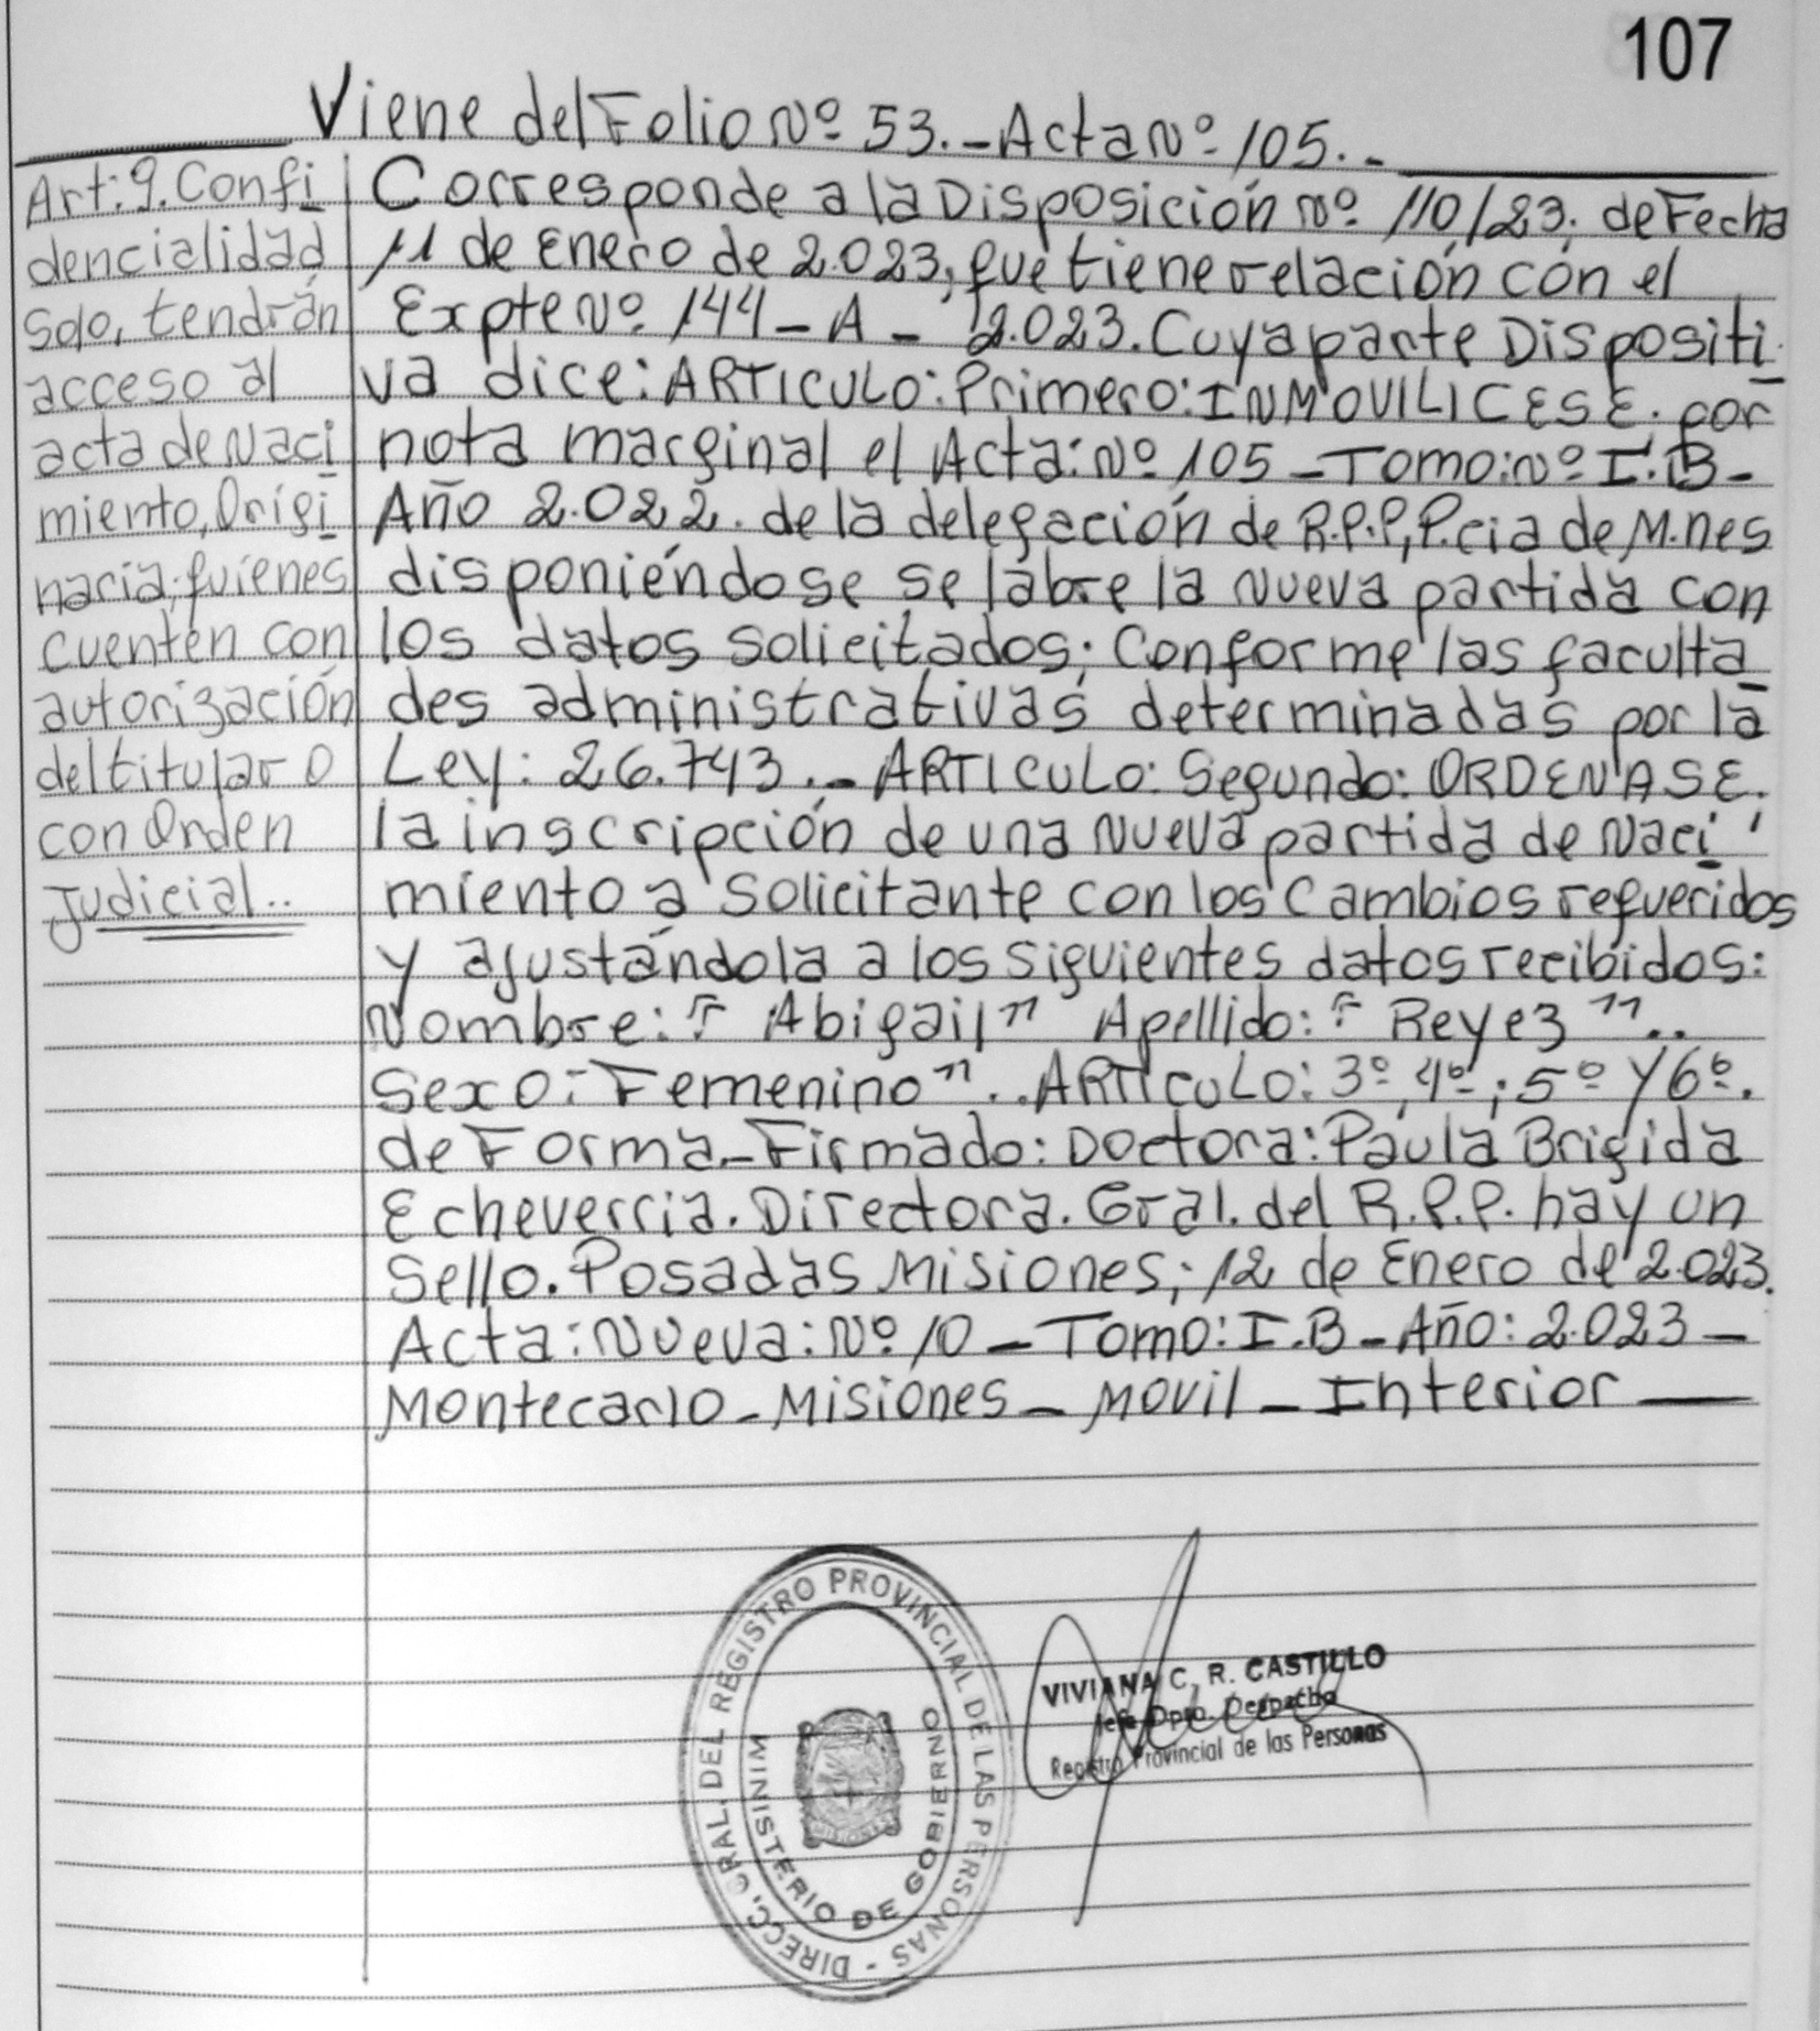 107
Viene del Folio Nº 53.-Acta Nº 105.-
Art: 9. Confi
dencialidad
Solo, tendrán
acceso al
acta de Naci
miento, Origi
naria; quienes
cuenten con
autorización
del titular o
con Orden
Judicial..
Corresponde a la Disposición Nº 110/23; de Fecha
11 de Enero de 2.023, que tiene relación con el
Expte Nº 144-A-2.023. Cuya parte Dispositi
va dice: ARTICULO: Primero: INMOVILICESE. por
nota marginal el Acta: Nº 105-Tomo: Nº I.B-
Año 2.022. de la delegación de R.P.P, P.cia de M.nes
disponiéndose se labre la Nueva partida con
los datos solicitados; Conforme las faculta
des administrativas determinadas por la
Ley: 26.743.- ARTICULO: Segundo: ORDENASE.
la inscripción de una Nueva partida de Naci
miento a Solicitante con los Cambios requeridos
y ajustándola a los siguientes datos recibidos:
Nombre: "Abigail" Apellido: "Reyez"..
Sexo: Femenino".. ARTICULO: 3º, 4º; 5º y 6º.
de Forma-Firmado: Doctora: Paula Brigida
Echeverria. Directora. Gral. del R.P.P. hay un
Sello. Posadas Misiones; 12 de Enero de 2.023.
Acta: Nueva: Nº 10-Tomo: I.B-Año: 2.023-
Montecarlo-Misiones-Movil-Interior-
DIRECC. GRAL. DEL REGISTRO PROVINCIAL DE LAS PERSONAS -
MINISTERIO DE GOBIERNO
VIVIANA C. R. CASTILLO
Jefe Dpto. Despacho
Registro Provincial de las Personas